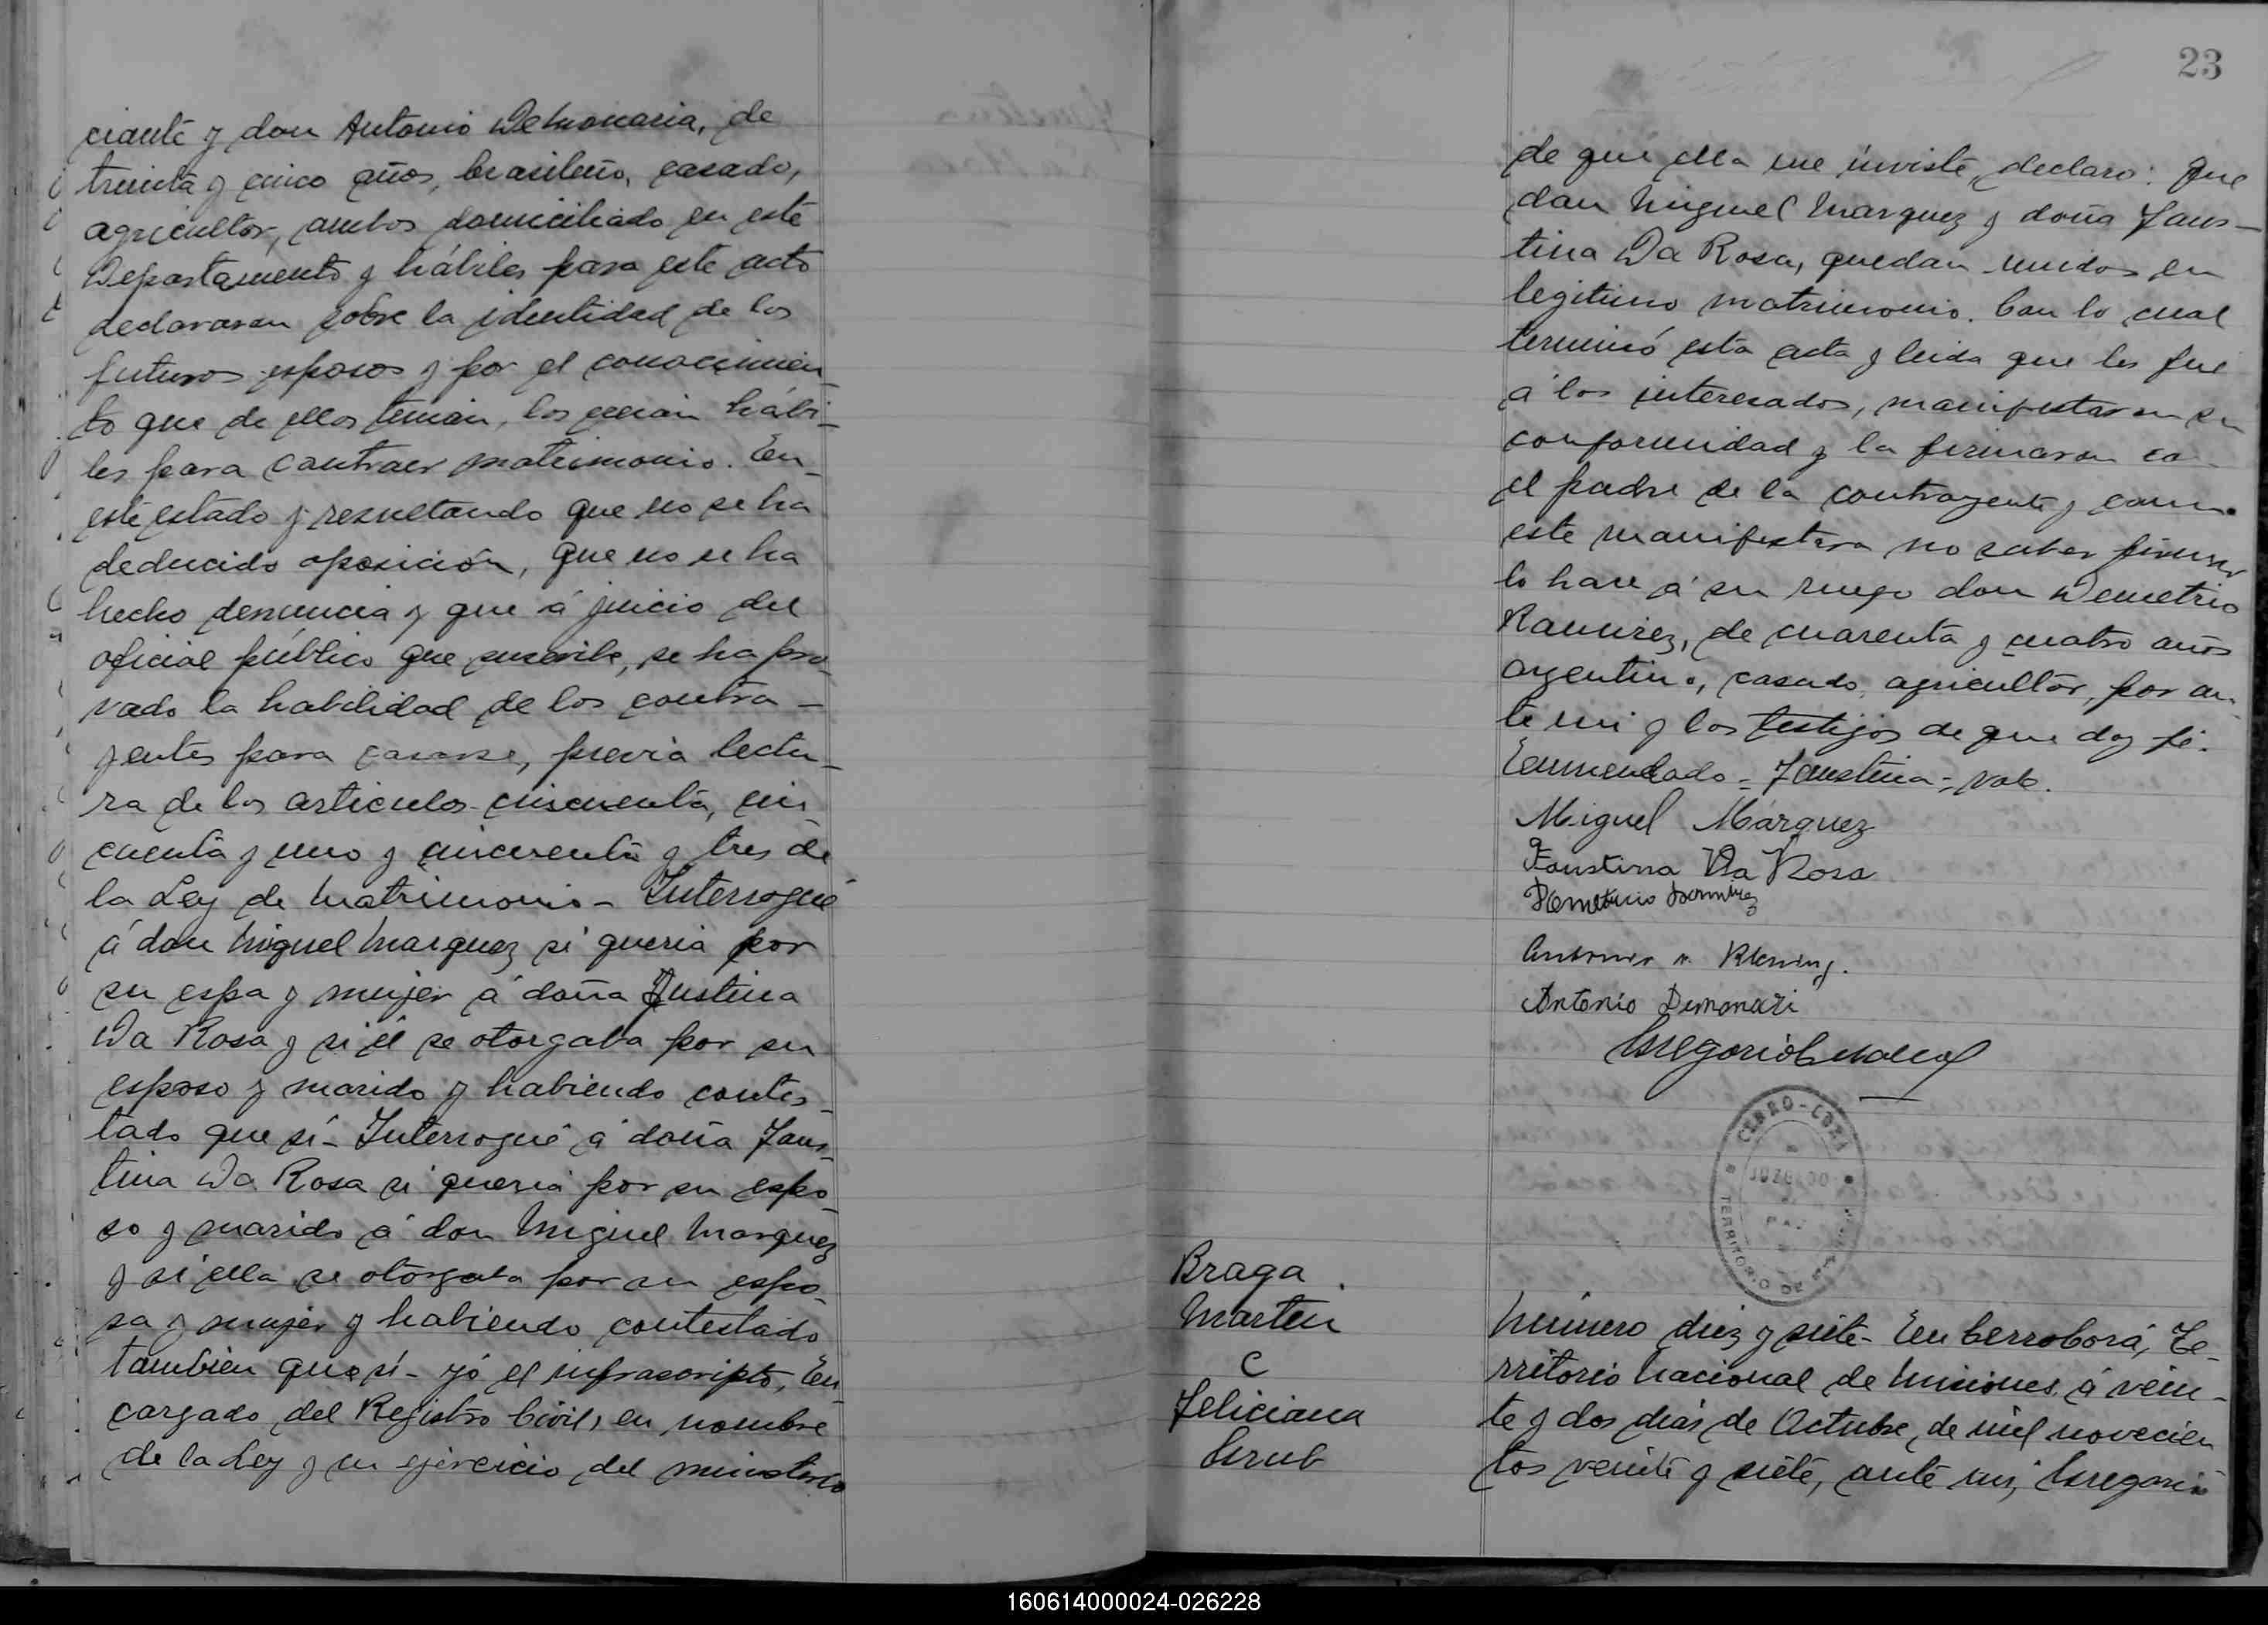 ciante y don Antonio Demonaria, de
treinta y cinco años, brasileño, casado,
agricultor, ambos domiciliado en este
Departamento y hábiles para este acto
declararon sobre la identidad de los
futuros esposos y por el conocimien_
to que de ellos tenian, los creian hábi_
les para contraer matrimonio. En_
este estado y resultando que no se ha
deducido oposición, que no se ha
hecho denuncia y que á juicio del
oficial público que suscribe, se ha pro_
vado la habilidad de los contra_
yentes para casarse, previa lectu_
ra de los articulos cincuenta, cin_
cuenta y uno y cincuenta y tres de
la Ley de Matrimonio - Interrogué
á don Miguel Marquez si queria por
su espa y mujer á doña Fustina
Da Rosa y si él se otorgaba por su
esposo y marido y habiendo contes_
tado que sí - Interrogué á doña Faus_
tina Da Rosa si queria por su espo_
so y marido á don Miguel Marquez
y si ella se otorgaba por su espo_
sa y mujer y habiendo contestado
tambien que sí - yó el infrascripto, En_
cargado del Registro Civil, en nombre
de la Ley y en ejercicio del ministerio
23
de que ella me inviste, declaro: que
don Miguel Marquez y doña Faus_
tina Da Rosa, quedan unidos en
legitimo matrimonio. Con lo cual
terminó esta acta y leida que les fue
á los interesados, manifestaron su
conformidad y la firmaron con
el padre de la contrayente y como
este manifestara no saber firmar
lo hace á su ruego don Demetrio
Ramirez, de cuarenta y cuatro años
argentino, casado, agricultor, por an_
te mi y los testigos de que doy fé.
Enmendado - Faustina - vale.
Miguel Márquez
Faustina Da Rosa
Demetrio Ramirez
Antonio
Antonio Demonari
Gregorio
CERRO-CORÁ
JUZGADO
DE
PAZ
TERRITORIO DE MISIONES
Braga
Martin
C
Feliciana
Número diez y siete - En Cerro Corá, Te_
rritorio Nacional de Misiones, á vein_
te y dos dias de Octubre, de mil novecien
tos veinte y siete, ante mi, Gregorio
160614000024-026228